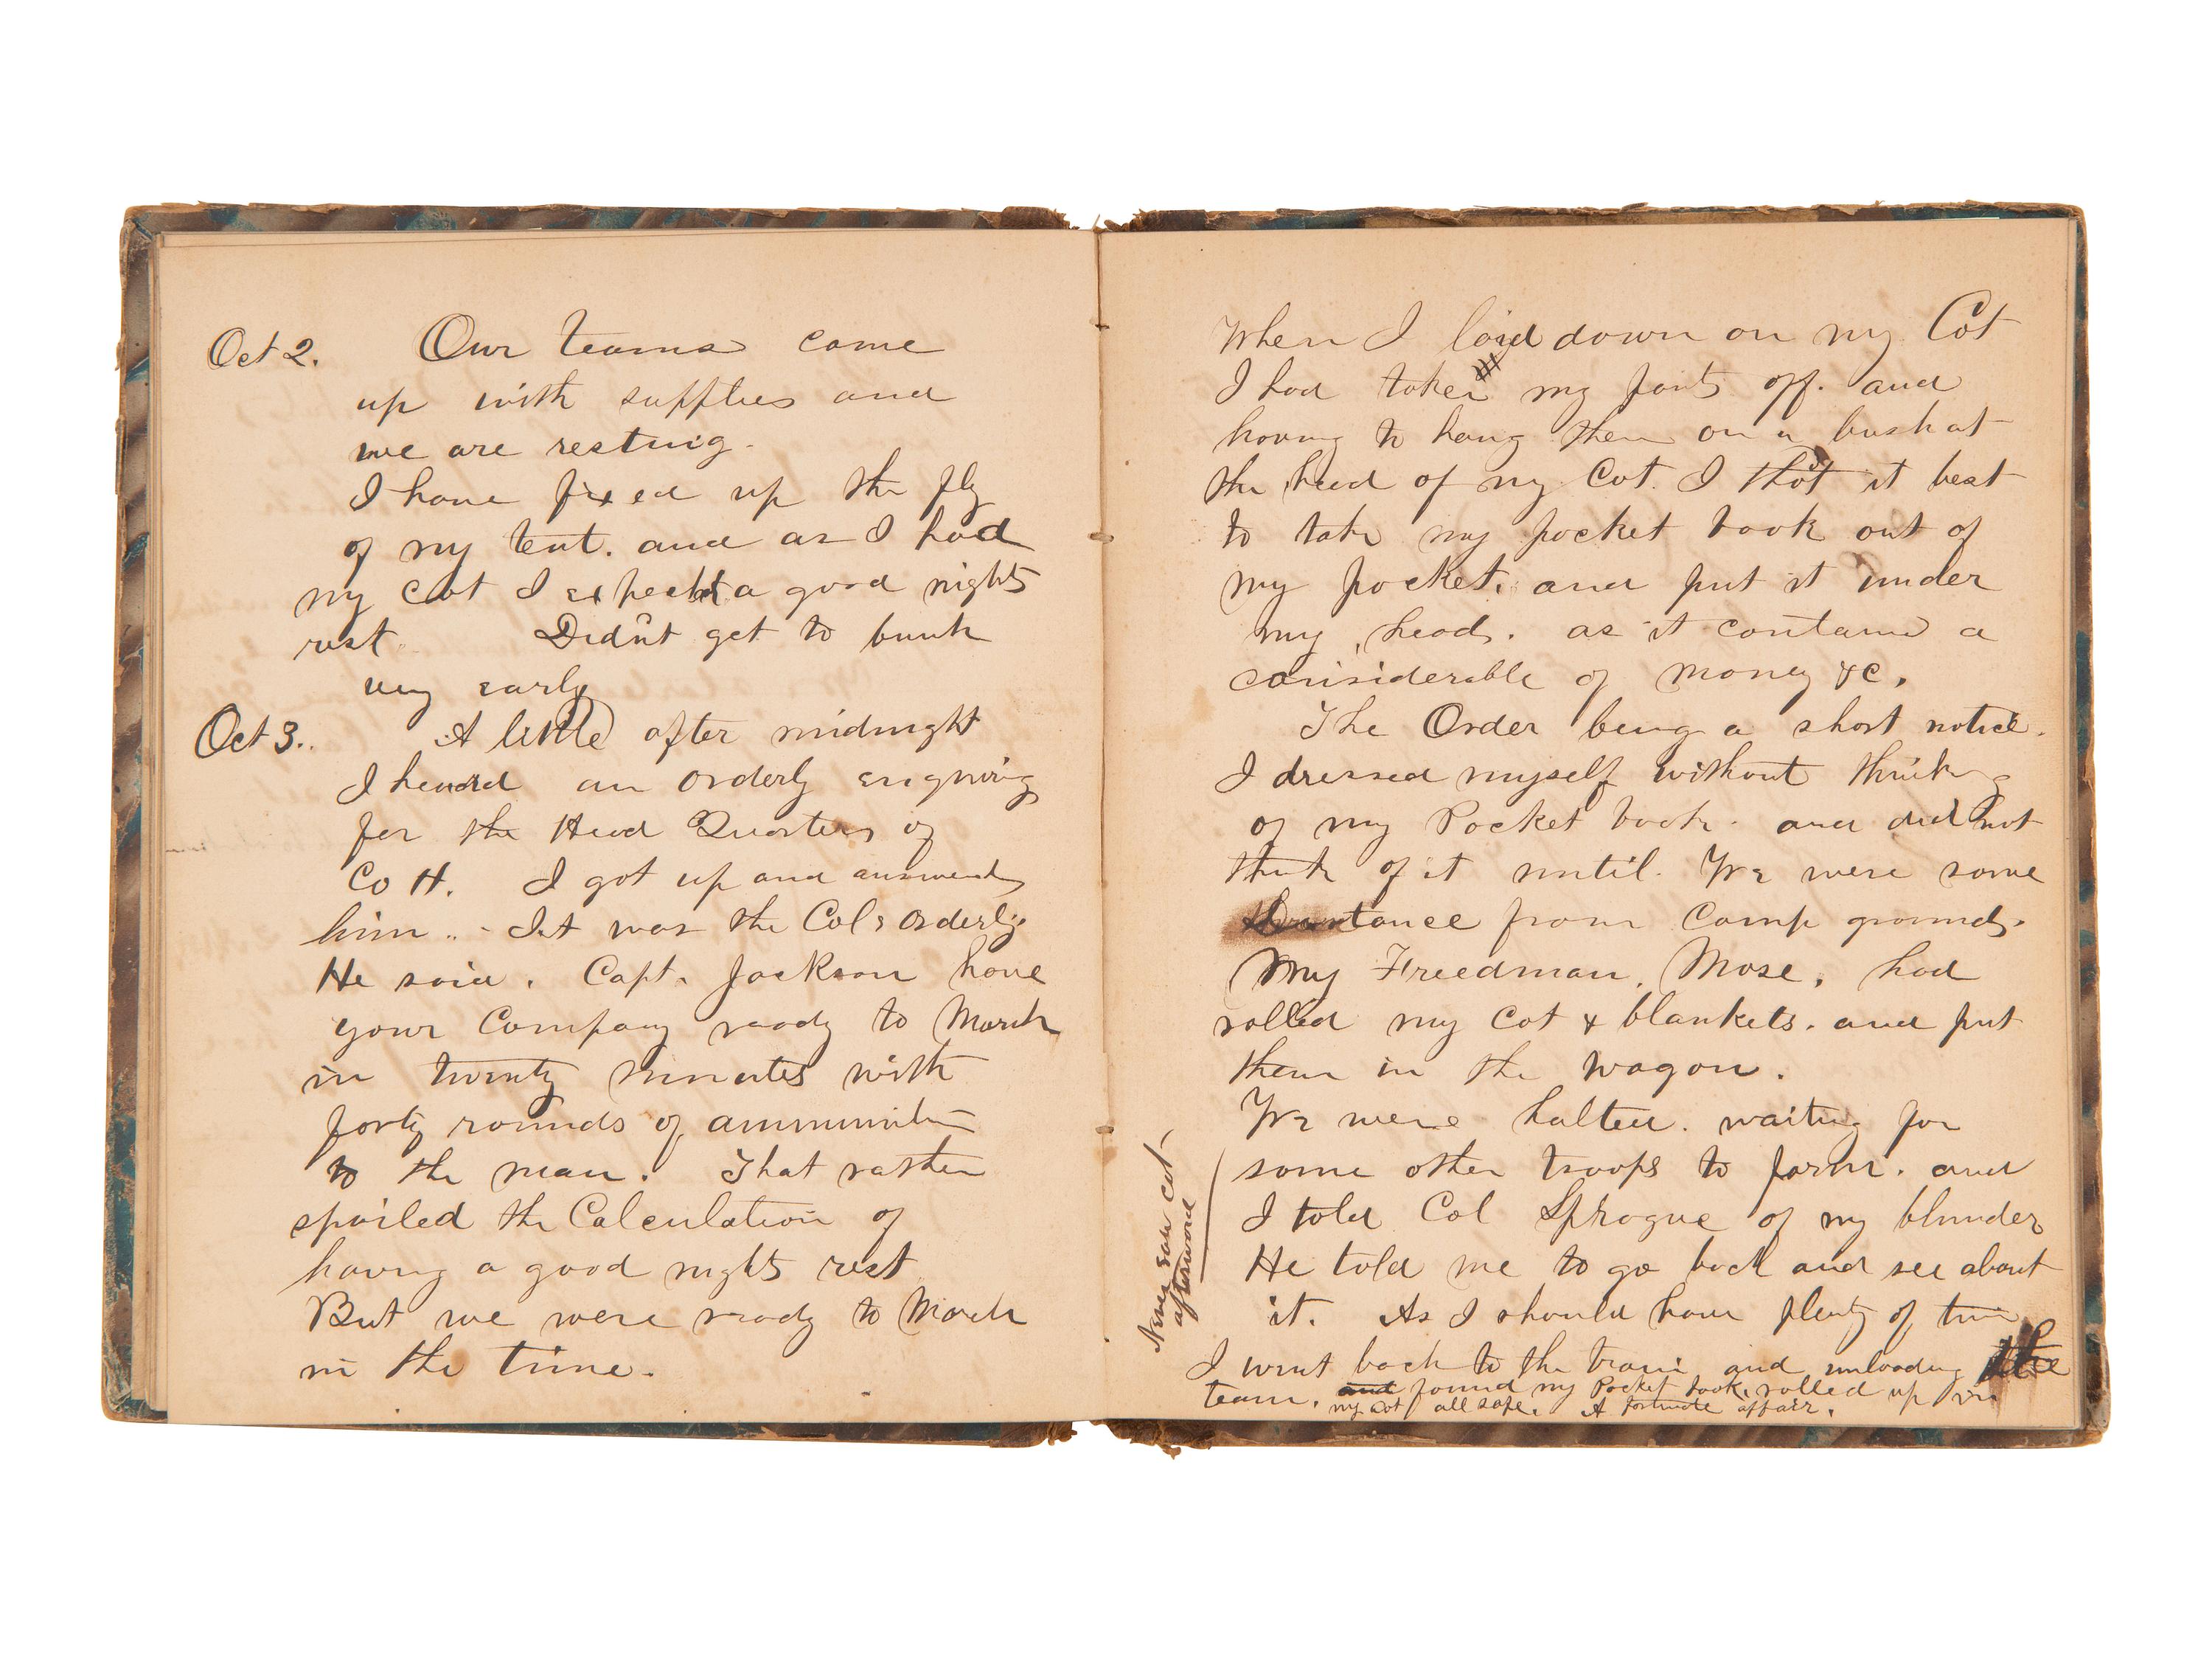 Oct 2. Our teams came
up with supplies and
we are resting.
I have fixed up the fly
of my tent. and as I had
my cot I expected a good nights
rest. Didn't get to bunk
very early
Oct 3. A little after midnight
I heard an orderly enquiring
for the Head Quarters of
Co H. I got up and answered
him. - It was the Cols Orderly.
He said. Capt. Jackson have
your Company ready to March
in twenty minutes with
forty rounds of ammunition
to the man. That rather
spoiled the Calculation of
having a good nights rest
But we were ready to March
in the time.
When I laid down on my Cot
I had taken my pants off. and
having to hang them on a bush at
the head of my Cot. I thot it best
to take my pocket book out of
my pocket. and put it under
my head. as it contained a
considerable of money &c.
The Order being a short notice.
I dressed myself without thinking
of my Pocket book. and did not
think of it until. We were some
distance from Camp grounds.
My Freedman, Mose, had
rolled my cot & blankets. and put
them in the wagon.
We were halted. waiting for
some other troops to form. and
I told Col Sprague of my blunder
He told me to go back and see about
it. As I should have plenty of time
I went back to the train and unloading the
team. and found my Pocket book rolled up in
my cot all safe. A fortunate affair.
Never saw cot
afterward